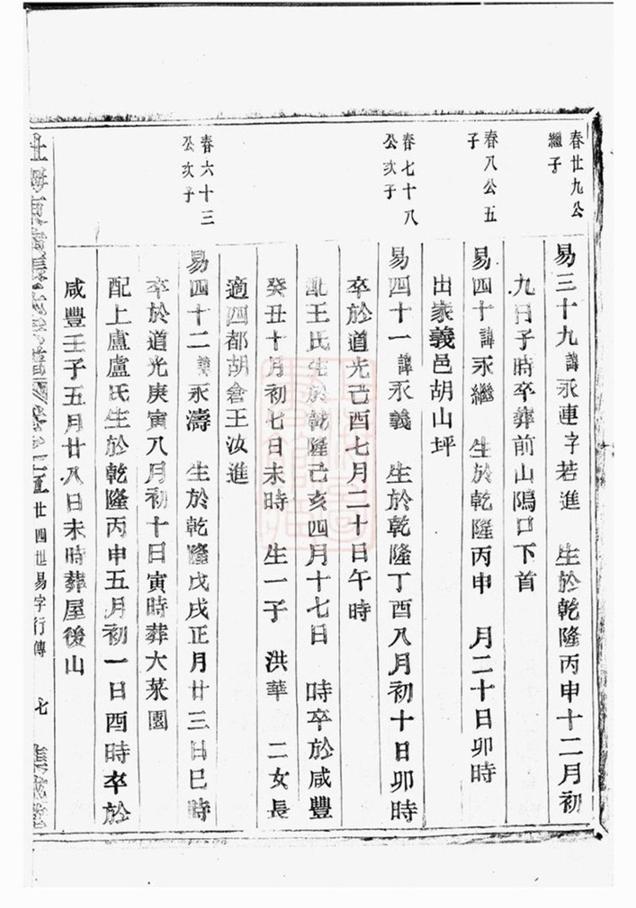 春廿九公
繼子
易三十九諱永連字若進 生於乾隆丙申十二月初
九日子時卒葬前山隝口下首
春八公五
子
易四十諱永繼 生於乾隆丙申 月二十日卯時
出家義邑胡山坪
春七十八
公次子
易四十一諱永義 生於乾隆丁酉八月初十日卯時
卒於道光己酉七月二十日午時
配王氏生於乾隆己亥四月十七日 時卒於咸豐
癸丑十月初七日未時 生一子 洪華 二女長
適四都胡倉王汝進
春六十三
公次子
易四十二諱永濤 生於乾隆戊戌正月廿三日巳時
卒於道光庚寅八月初十日寅時葬大菜園
配上盧盧氏生於乾隆丙申五月初一日酉時卒於
咸豐壬子五月廿八日未時葬屋後山
廿四世易字行傳 七